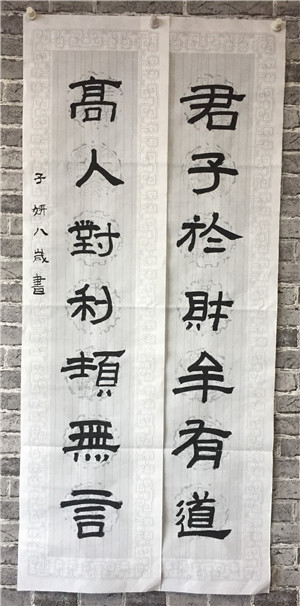 君子於財牟有道
髙人對利無言
子妍八歲書